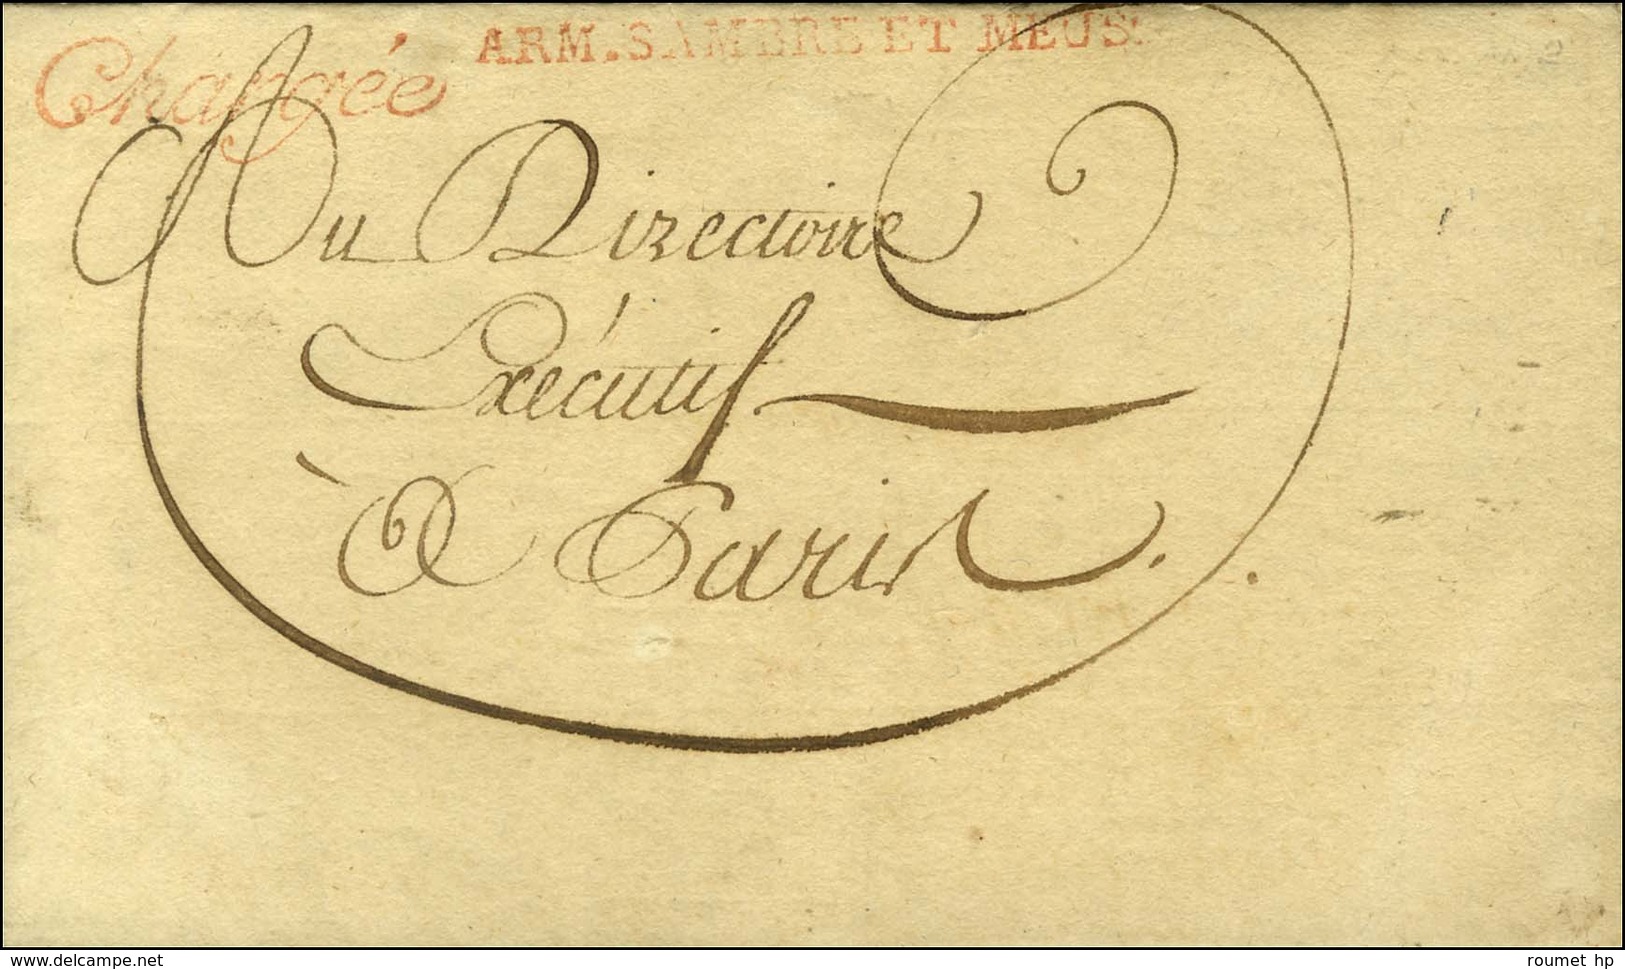 ARM. SAMBRE ET MEUS.
Chargée
Au Directoire
Exécutif
à Paris.
www.delcampe.net
roumet hp